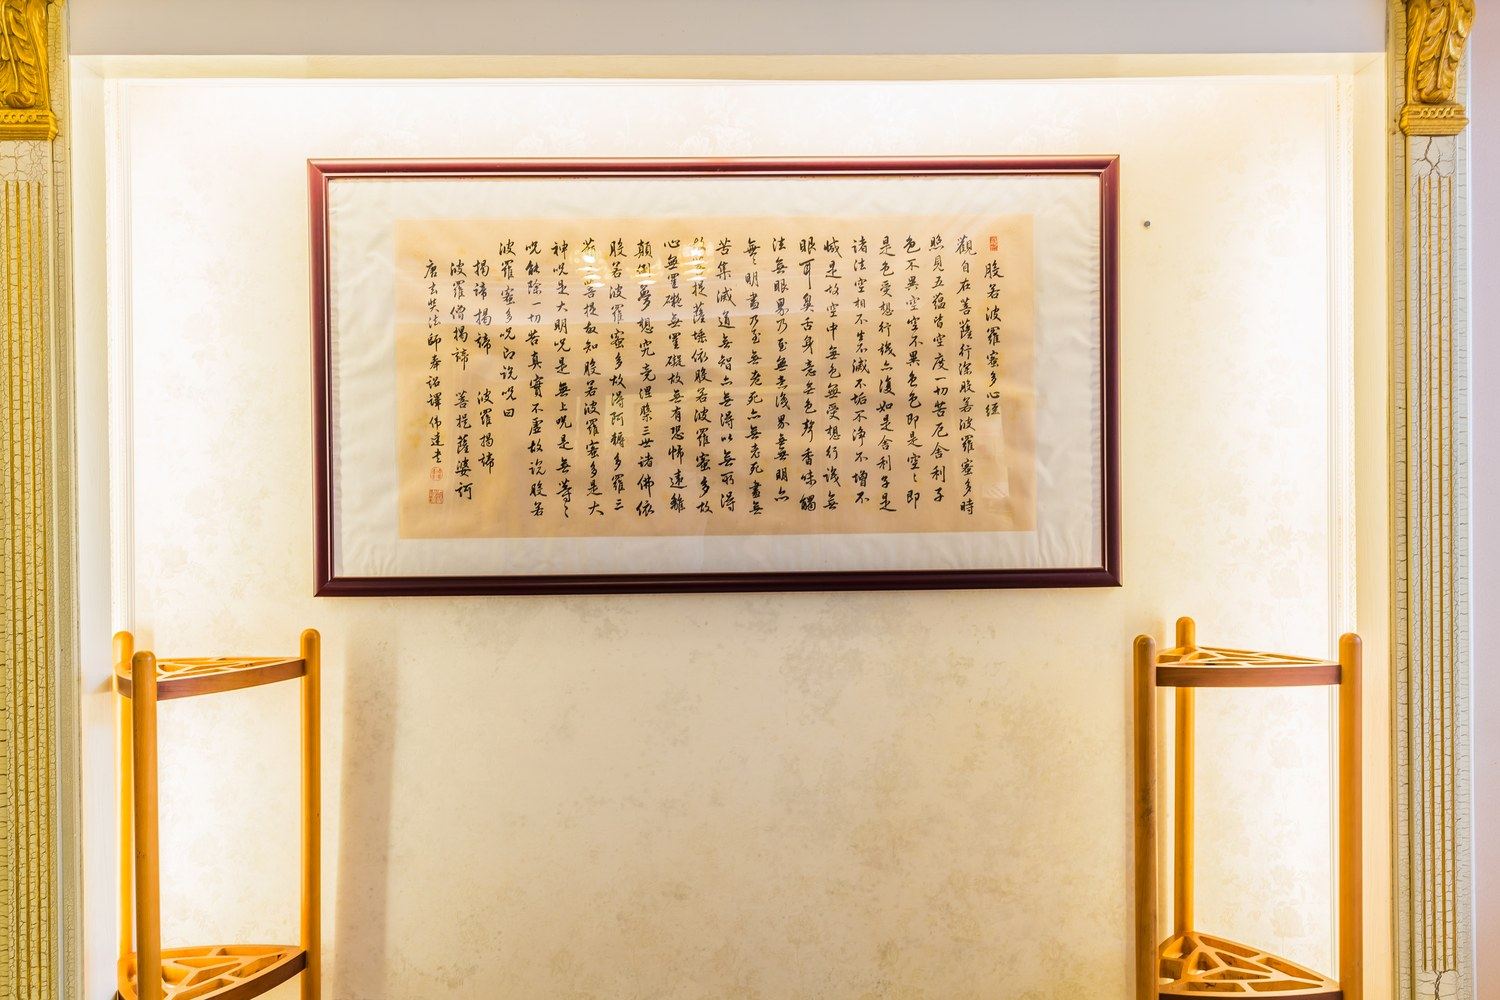 般若波羅蜜多心經
觀自在菩薩行深般若波羅蜜多時
照見五蘊皆空度一切苦厄舍利子
色不異空空不異色色即是空〻即
是色受想行識亦復如是舍利子是
諸法空相不生不滅不垢不淨不增不
減是故空中無色無受想行識無
眼耳鼻舌身意無色聲香味觸
法無眼界乃至無意識界無無明亦
無〻明盡乃至無老死亦無老死盡無
苦集滅道無智亦無得以無所得
故菩提薩埵依般若波羅蜜多故
心無罣礙無罣礙故無有恐怖遠離
顛倒夢想究竟涅槃三世諸佛依
般若波羅蜜多故得阿耨多羅三
藐三菩提故知般若波羅蜜多是大
神咒是大明咒是無上咒是無等〻
咒能除一切苦真實不虛故說般若
波羅蜜多咒即說咒曰
揭諦揭諦 波羅揭諦
波羅僧揭諦 菩提薩婆訶
唐玄奘法師奉詔譯偉達書